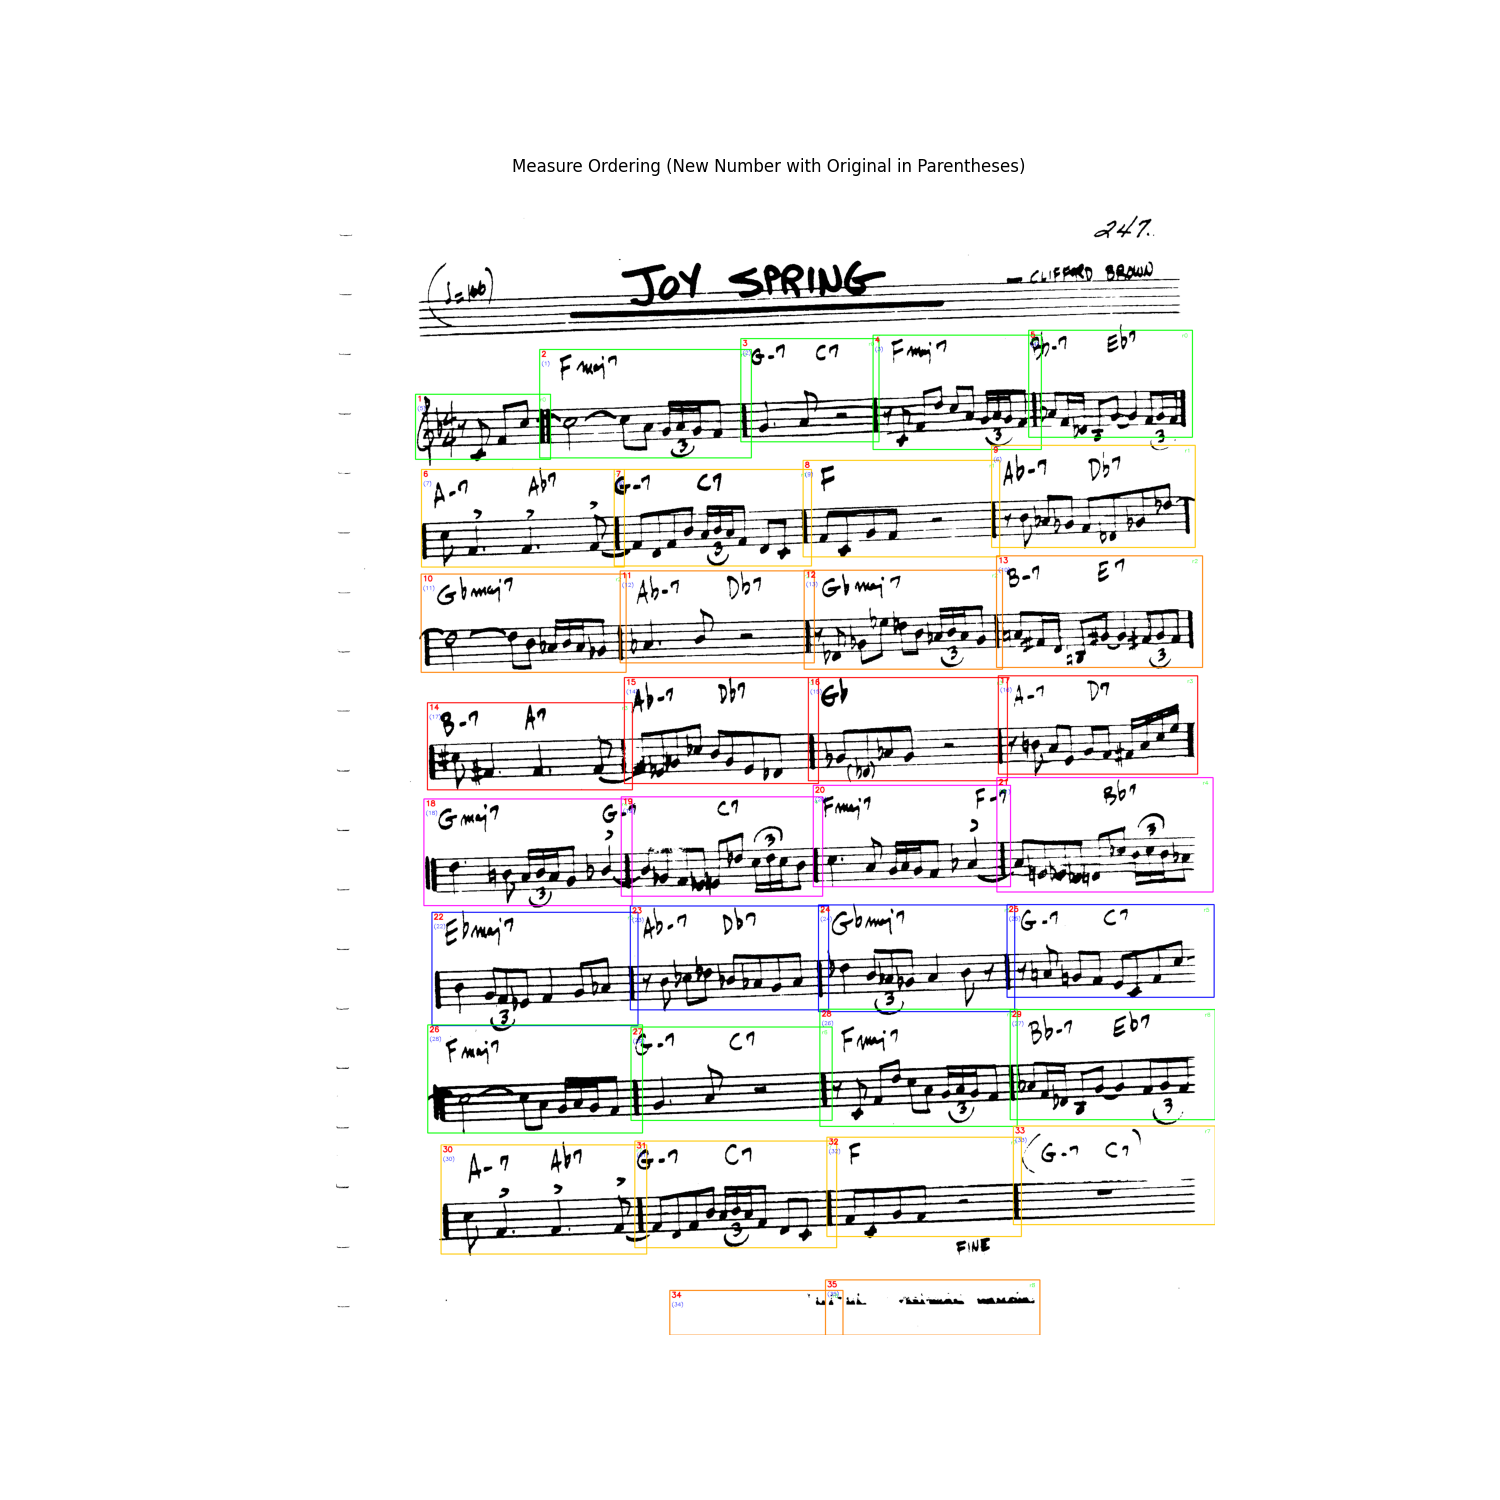 Measure Ordering (New Number with Original in Parentheses)
247.
(♩=166) JOY SPRING — CLIFFORD BROWN
1 2 (1) Fmaj7 3 (2) G-7 C7 4 (3) Fmaj7 5 Bb-7 Eb7
3 3 3
6 (7) A-7 Ab7 7 G-7 C7 8 (9) F 9 (6) Ab-7 Db7
3
10 (11) Gbmaj7 11 (12) Ab-7 Db7 12 (13) Gbmaj7 13 (10) B-7 E7
3 3
14 (17) B-7 A7 15 (14) Ab-7 Db7 16 (15) Gb 17 (16) A-7 D7
18 (18) Gmaj7 G-7 19 C7 20 Fmaj7 F-7 21 Bb7
3 3 3
22 (22) Ebmaj7 23 (23) Ab-7 Db7 24 (24) Gbmaj7 25 (25) G-7 C7
3 3
26 (28) Fmaj7 27 G-7 C7 28 (26) Fmaj7 29 (27) Bb-7 Eb7
3 3
30 (30) A-7 Ab7 31 (31) G-7 C7 32 (32) F 33 (33) (G-7 C7)
3
FINE
34 (34) 35 (35)